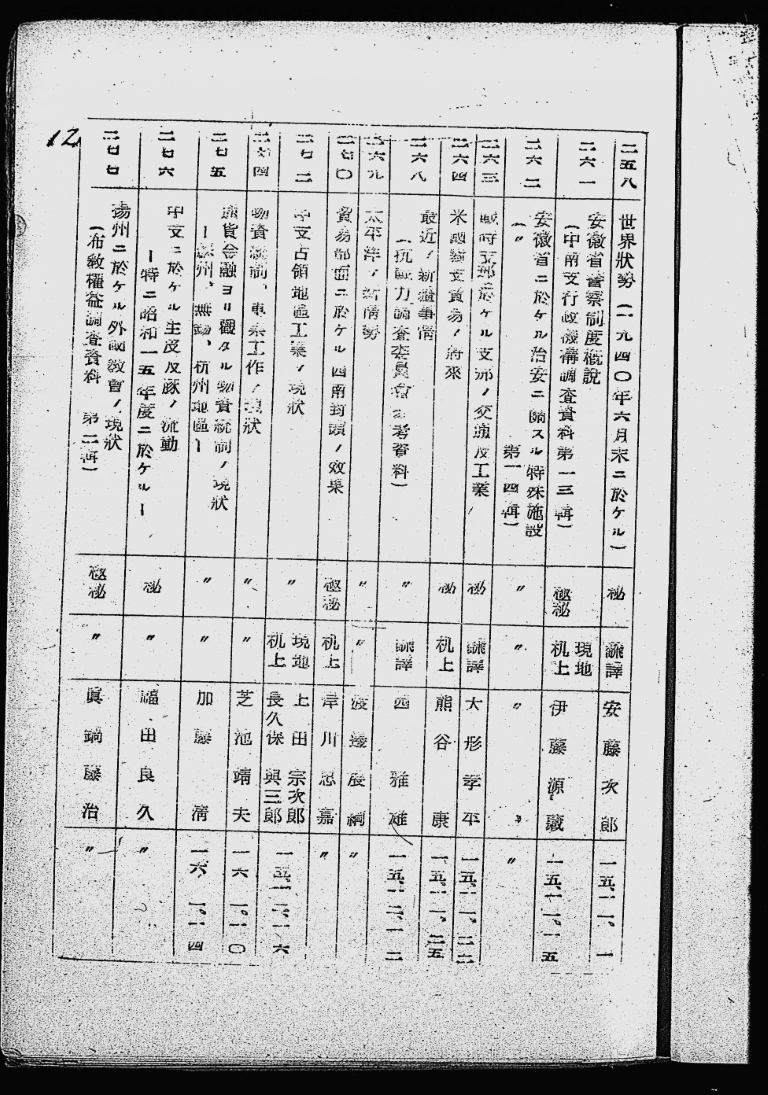 12
二五八 世界狀勢（一九四〇年六月末ニ於ケル） 秘 飜譯 安藤次郎 一五、一一、一
二六一 安徽省警察制度概說 極秘 現地 伊藤源藏 一五、一一、一五
（中南支行政機構調查資料第一三輯） 机上
二六二 安徽省ニ於ケル治安ニ關スル特殊施設 〃 〃 〃 〃
（〃 第一四輯）
二六三 戰時支那ニ於ケル支那ノ交通及工業 秘 飜譯 大形孝平 一五、一一、二二
二六四 米國對支貿易ノ將來 秘 机上 熊谷康 一五、一一、二五
二六八 最近ノ新疆事情 〃 飜譯 西雅雄 一五、一二、一二
（抗戰力調查委員會參考資料）
二六九 太平洋ノ新情勢 〃 〃 渡邊 綱 〃
二七〇 貿易部面ニ於ケル西南封鎖ノ效果 極秘 机上 岸川忠嘉 〃
二七二 中支占領地區工業ノ現狀 〃 現地 上田宗次郎 一五、一二、一六
机上 長久保與三郎
二七四 物資統制、專賣工作ノ現狀 〃 〃 芝池靖夫 一六、一、一〇
二七五 通貨金融ヨリ觀タル物資統制ノ現狀 〃 〃 加藤淸 一六、一、一四
ー蘇州、無錫、杭州地區ー
二七六 中支ニ於ケル主度及豚ノ流動 秘 〃 福田良久 〃
ー特ニ昭和一五年度ニ於ケルー
二七七 揚州ニ於ケル外國敎會ノ現狀 極秘 〃 眞鍋藤治 〃
（布敎權益調查資料 第二輯）